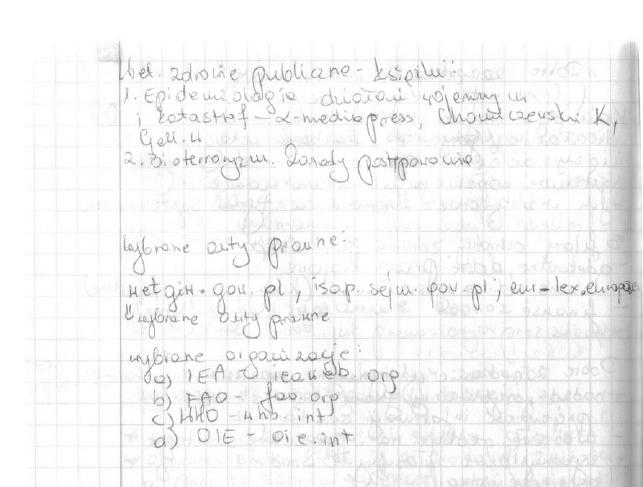 Wet. zdrowie publiczne - książki
1. Epidemiologia działań wojennych
i katastrof - α-medica press, Chomiczewski K,
Gall. W
2. Bioterroryzm. Zasady postępowania
Wybrane akty prawne:
wetgiw.gov.pl, isap.sejm.gov.pl; eur-lex.europa
wybrane akty prawne
wybrane organizacje:
a) IEA - ieaweb org
b) FAO - fao.org
c) WHO - who.int
d) OIE - oie.int